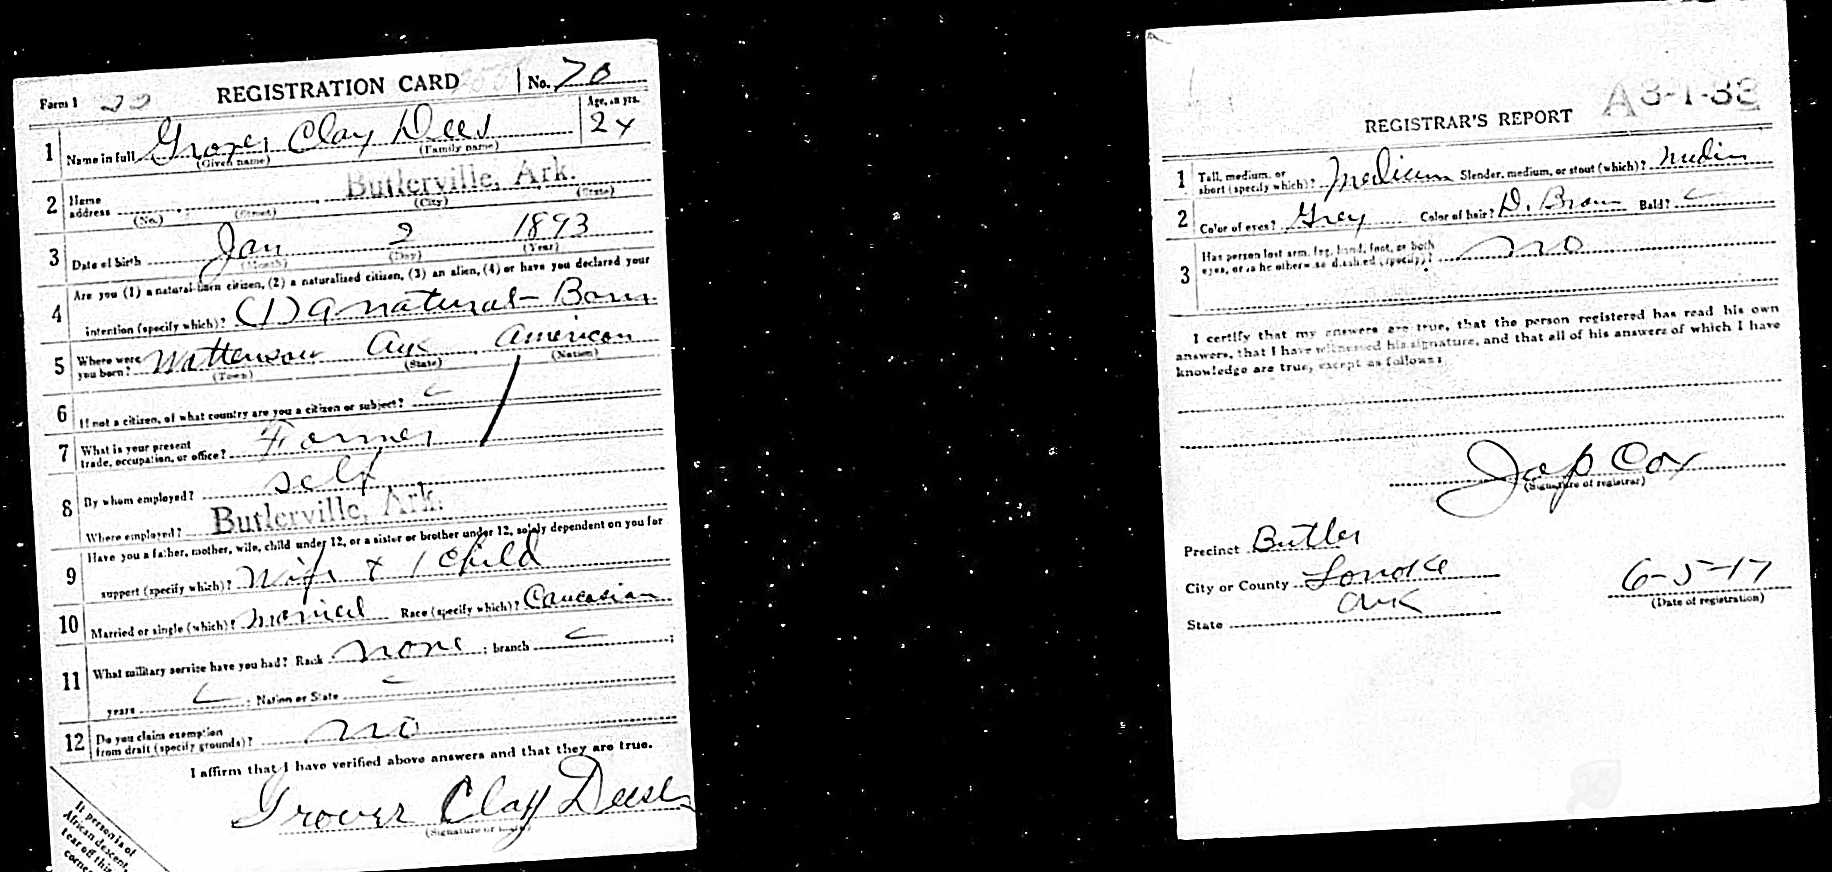 Form 1 REGISTRATION CARD No. 70
Age, in yrs.
1 Name in full Grover Clay Dees 24
(Given name) (Family name)
2 Home address Butlerville, Ark.
(No.) (Street) (City) (State)
3 Date of birth Jan 2 1893
(Month) (Day) (Year)
Are you (1) a natural-born citizen, (2) a naturalized citizen, (3) an alien, (4) or have you declared your
4 intention (specify which)? (1) a natural-Born
5 Where were you born? Ark American
(Town) (State) (Nation)
6 If not a citizen, of what country are you a citizen or subject?
7 What is your present trade, occupation, or office? Farmer
8 By whom employed? self
Where employed? Butlerville, Ark.
Have you a father, mother, wife, child under 12, or a sister or brother under 12, solely dependent on you for
9 support (specify which)? Wife + 1 child
10 Married or single (which)? married Race (specify which)? Caucasian
11 What military service have you had? Rank none ; branch ;
years ; Nation or State
12 Do you claim exemption
from draft (specify grounds)? no
I affirm that I have verified above answers and that they are true.
Grover Clay Deese
(Signature or mark)
If person is of
African descent,
tear off this
corner
A 3-1-33
REGISTRAR'S REPORT
1 Tall, medium, or
short (specify which)? Medium Slender, medium, or stout (which)?
2 Color of eyes? Grey Color of hair? D. Brown Bald?
Has person lost arm, leg, hand, foot, or both
3 eyes, or is he otherwise disabled (specify)? no
I certify that my answers are true, that the person registered has read his own
answers, that I have witnessed his signature, and that all of his answers of which I have
knowledge are true, except as follows:
Jap Cox
(Signature of registrar)
Precinct Butler
City or County Lonoke
State Ark
6-5-17
(Date of registration)